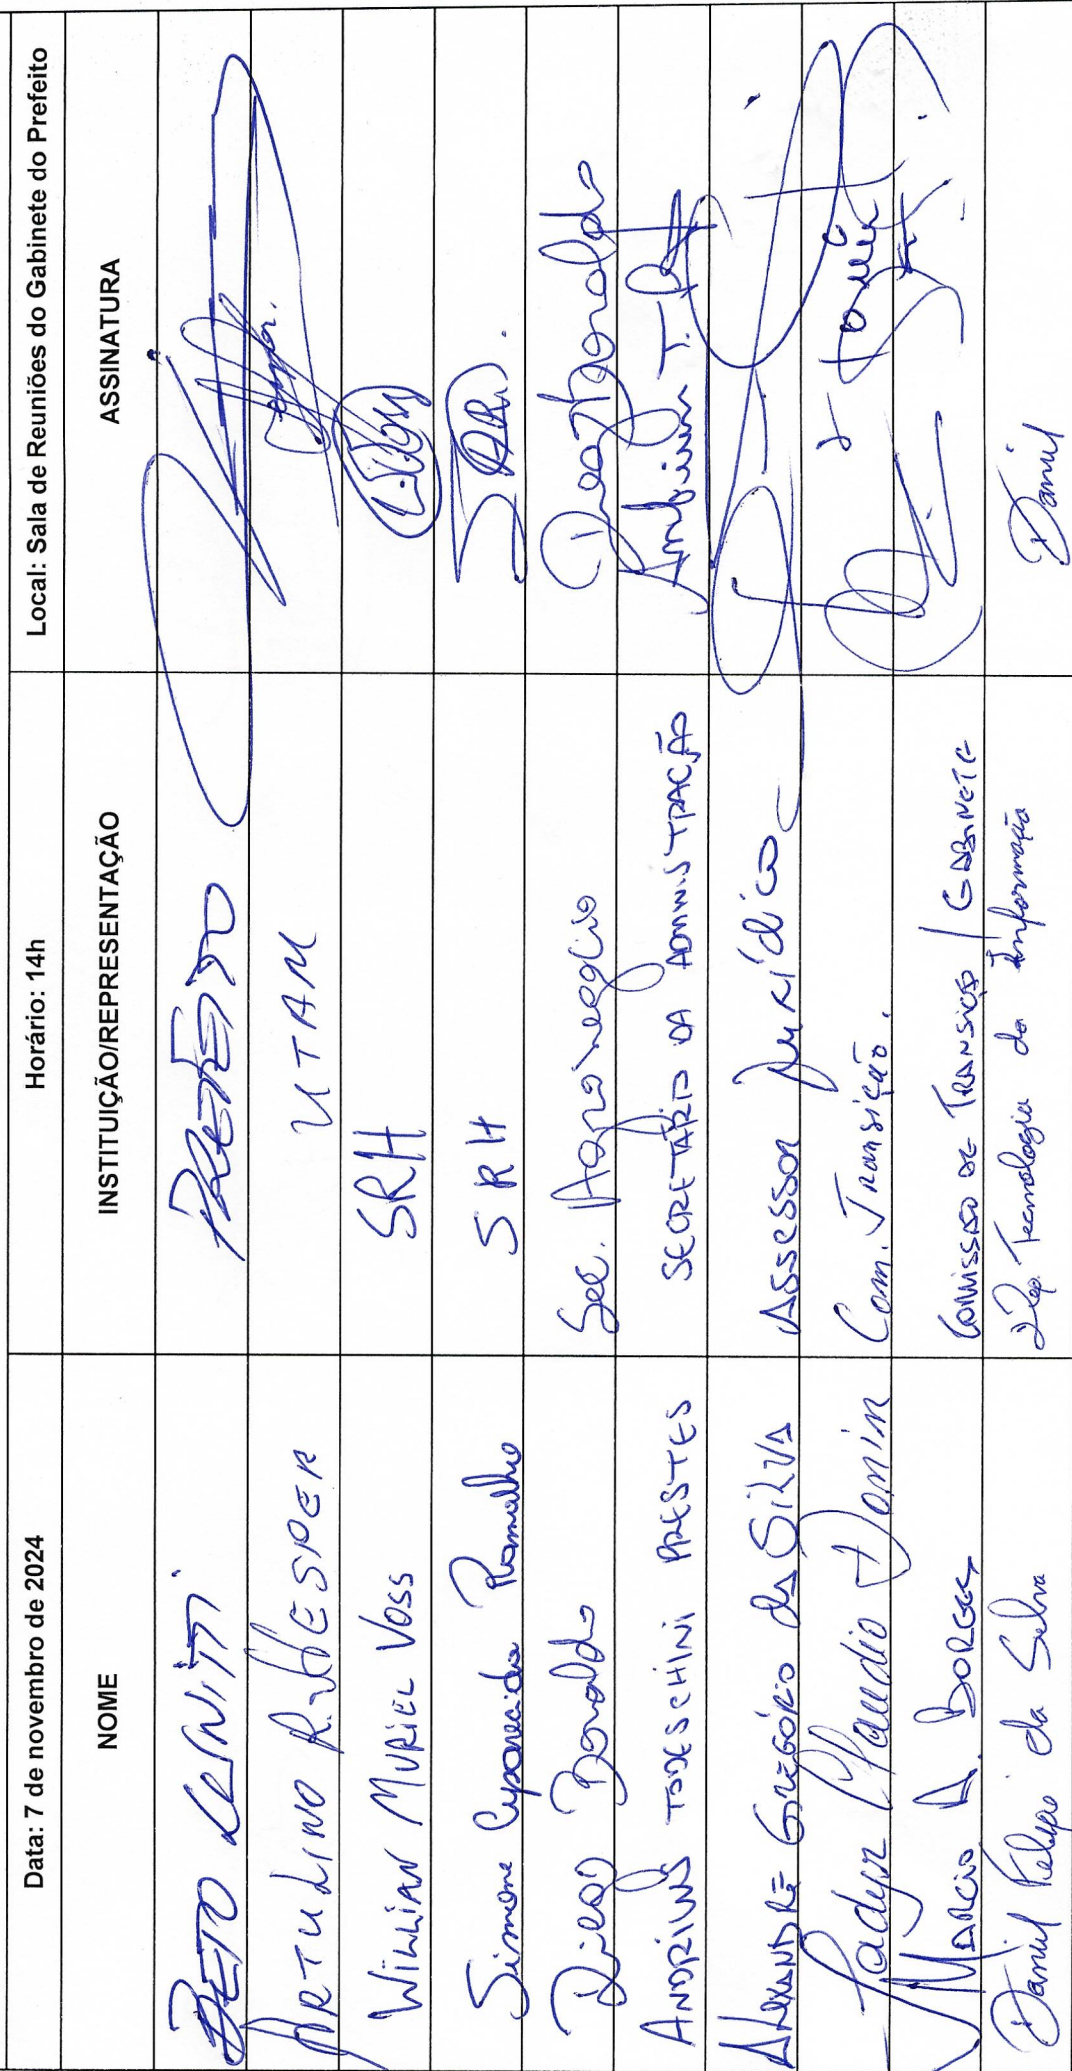 Data: 7 de novembro de 2024 Horário: 14h Local: Sala de Reuniões do Gabinete do Prefeito
NOME INSTITUIÇÃO/REPRESENTAÇÃO ASSINATURA
BETO PREFEITO
ARTULINO R. VESPER UTAM
WILLIAN MURIEL VOSS SRH
Simone Aparecida Ramalho SRH
Diego Bonaldo Sec. Agronegócio Diego Bonaldo
ANDRIUS TODESCHINI PRESTES SECRETARIO DA ADMINISTRAÇÃO
ALEXANDRE GREGÓRIO da SILVA Assessor Jurídico
Ladyr Claudio Donin Com. Transição.
MARCIO A. BORGES COMISSÃO DE TRANSIÇÃO / GABINETE
Daniel Felipe da Silva Dep. Tecnologia da Informação Daniel